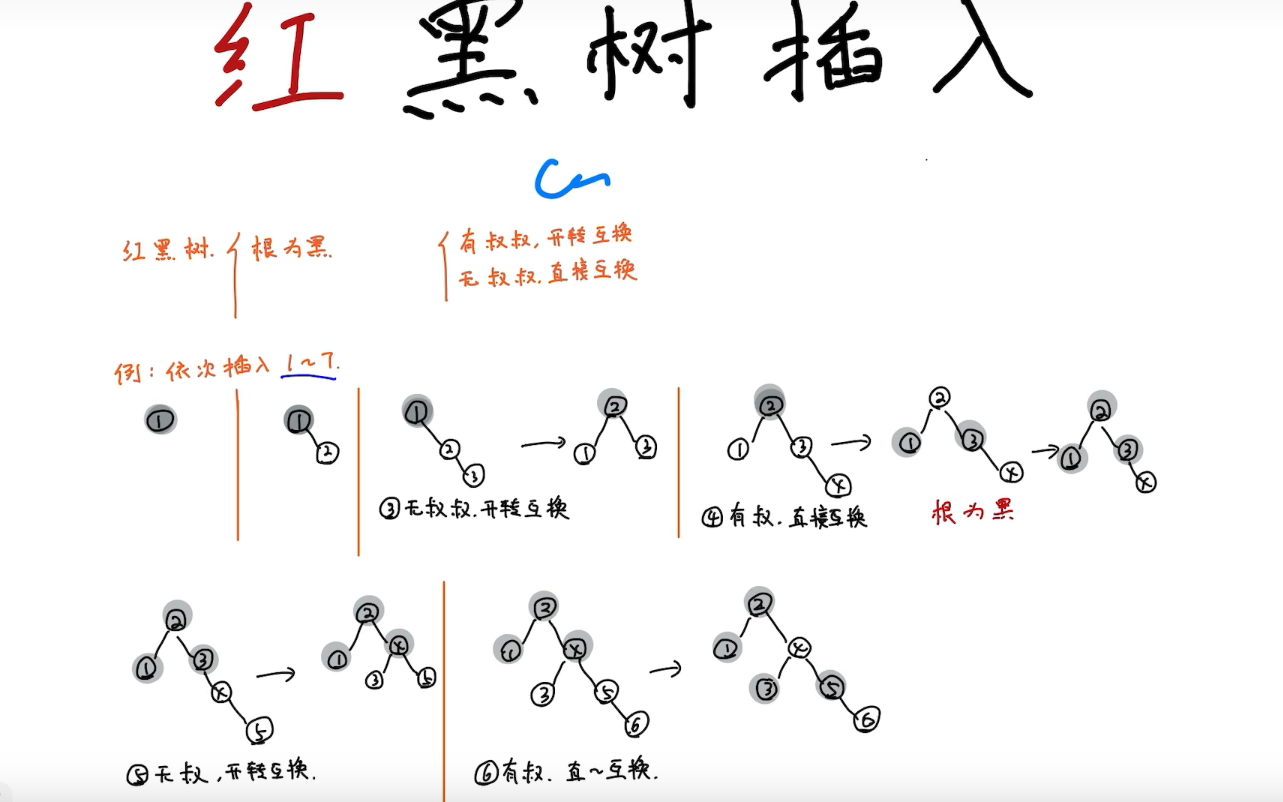 红黑树插入
红黑树. 根为黑.
有叔叔, 开转互换
无叔叔. 直接互换
例: 依次插入 1~7.
①
① ②
① ② ③ → ② ① ③
③无叔叔.开转互换
② ① ③ ④ → ② ① ③ ④ → ② ① ③ ④
④有叔. 直接互换
根为黑
② ① ③ ④ ⑤ → ② ① ④ ③ ⑤
⑤无叔,开转互换.
② ① ④ ③ ⑤ ⑥ → ② ① ④ ③ ⑤ ⑥
⑥有叔. 直~互换.